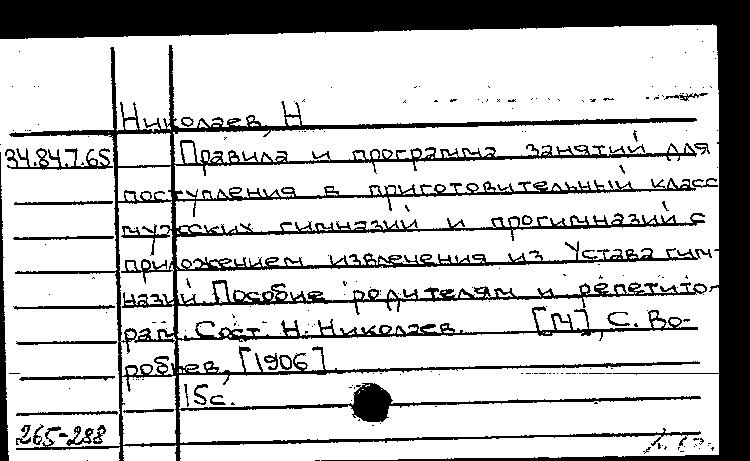 Николаев, Н
34.84.7.65 Правила и программа занятий для
поступления в приготовительный класс
мужских гимназий и прогимназий с
приложением извлечения из Устава гим-
назий. Пособие родителям и репетито-
рам. Сост. Н. Николаев. [М], С. Во-
робьев, [1906].
15с.
265-288